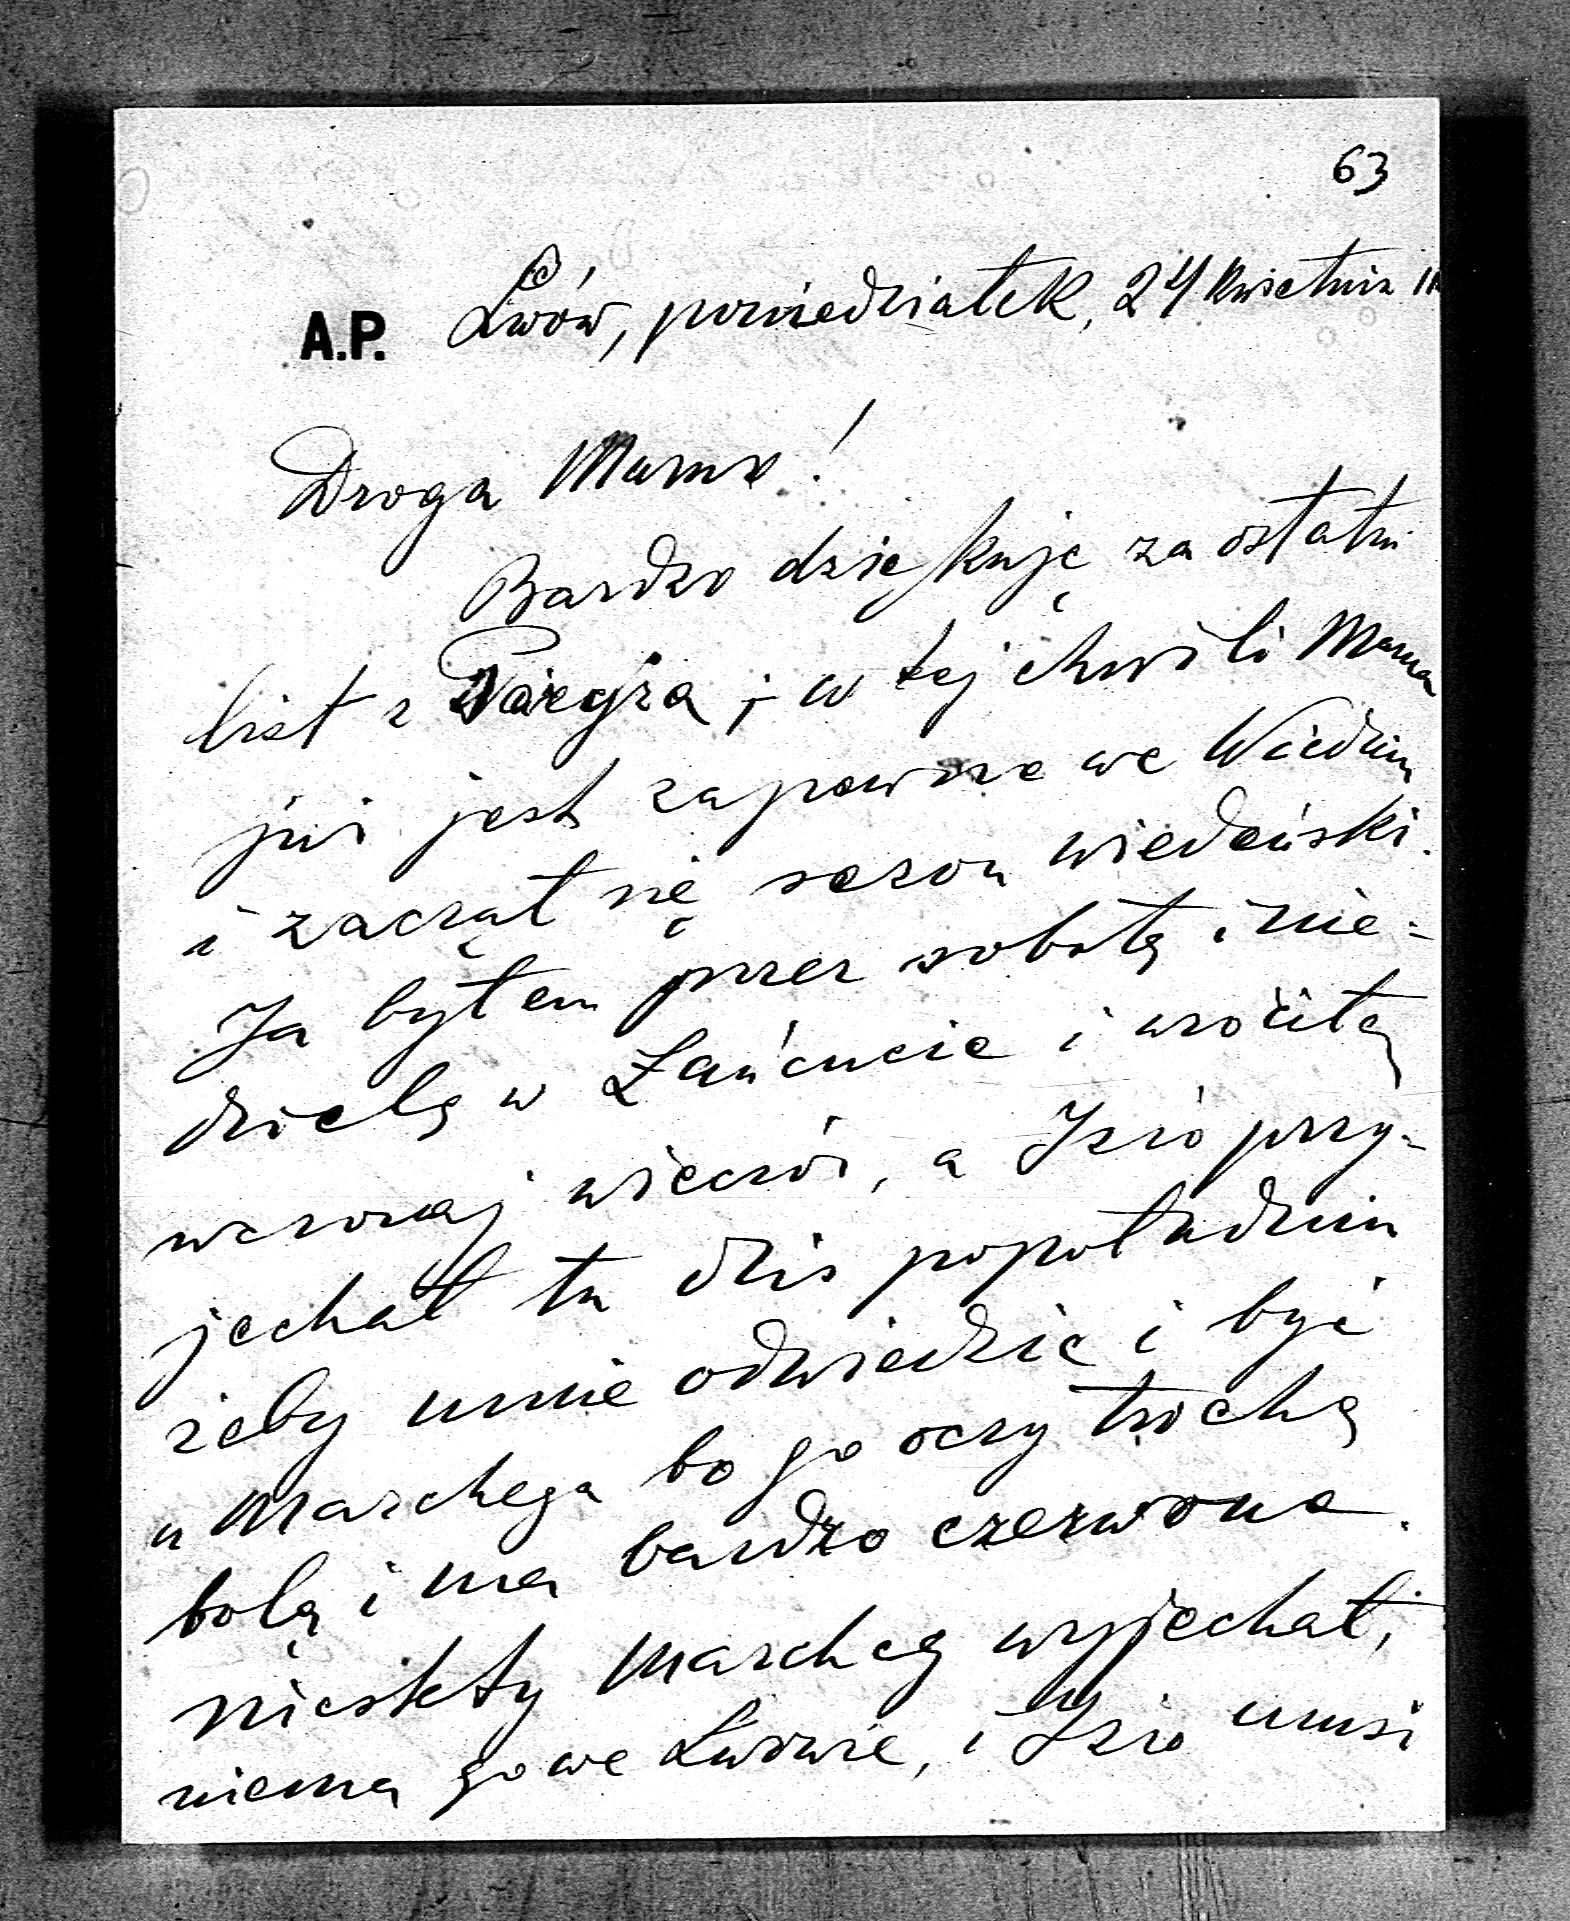 63
A.P. Lwów, poniedziałek, 24 kwietnia 11
Droga Mamo!
Bardzo dziękuję za ostatni
list z Paryża; w tej chwili Mama
już jest zapewne we Wiedniu
i zaczął się sezon wiedeński.
Ja byłem przez sobotę i nie=
dzielę w Łańcucie i wróciłę
wczoraj wieczór, a Izio przy-
jechał tu dziś popołudniu
żeby mnie odwiedzić i być
u Marchega bo go oczy trochę
bolą i ma bardzo czerwone.
niestety Marcheg wyjechał,
niema go we Lwowie, i Izio musi